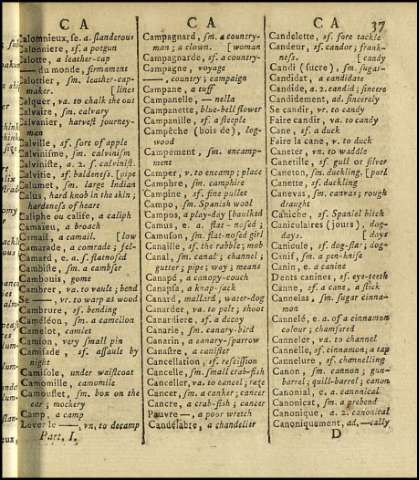 C A
C A
C A
37
Calomnieux, se. a. slanderous
Calonniere, sf. a potgun
Calotte, a leather-cap
— du monde, firmament
Calottier, sm. a leather-cap-
maker. [lines
Calquer, va. to chalk the out
Calvaire, sm. calvary
Calvanier, harvest journey-
man
Calville, sf. sort of apple
Calvinisme, sm. calvinism
Calviniste, a. 2. s. calvinist.
Calvitie, sf. baldness. [pipe
Calumet, sm. large Indian
Calus, hard knob in the skin;
hardeness of heart
Caliphe ou calife, a caliph
Camaieu, a broach
Camail, a camail. [low
Camarade, a comrade; fel-
Camard, e. a. f. flatnosed
Cambiste, sm. a cambser
Cambouis, gome
Cambrer, va. to vault; bend
Se —, vr. to warp as wood
Cambrure, sf. bending
Caméléon, sm. a camelion
Camelot, camlet
Camion, very small pin
Camisade, sf. assault by
night
Camisole, under waistcoat
Camomille, camomila
Camouflet, sm. box on the
ear; mockery
Camp, a camp
Lever le —, vn, to decamp
Part. I.
Campagnard, sm. a country-
man; a clown. [woman
Campagnarde, sf. a country-
Campagne, voyage
—, country; campaign
Campane, a tuff
Campanelle, — nella
Campanette, blue-bell flower
Campanille, sf. a steeple
Campêche (bois de), log-
wood
Campement, sm. encamp-
ment
Camper, v. to encamp; place
Camphre, sm. camphire
Campine, sf. fine pullet
Campo, sm. Spanish wool
Campos, a play-day [baulked
Camus, e. a. flat-nosed;
Camuson, sm. flat-nosed girl
Canaille, sf. the rabble; mob
Canal, sm. canal; channel;
gutter; pipe; way; means
Canapé, a canopy-couch
Canapsa, a knap-sack
Canard, mallard; water-dog
Canarder, va. to pelt; shoot
Canardiere, sf. a decoy
Canarie, sm. canary-bird
Canarin, a canary-sparrow
Canastre, a canister
Cancellation, sf. rescission
Cancelle, sm. small crab-fish
Canceller, va. to cancel; raze
Cancer, sm. a canker; cancer
Cancre, a crab-fish; cancer
Pauvre —, a poor wretch
Candélabre, a chandelier
Candelette, sf. fore tackle
Candeur, sf. candor; frank-
ness. [candy
Candi (sucre), sm. sugar-
Candidat, a candidate
Candide, a. 2. candid; sincere
Candidement, ad. sincerely
Se candir, vr. to candy
Faire candir, va. to candy
Cane, sf. a duck
Faire la cane, v. to duck
Caneter, vn. to waddle
Canetille, sf. gull or silver
Caneton, sm. duckling. [purl
Canette, sf. duckling
Canevas, sm. canvas; rough
draught
Caniche, sf. Spaniel bitch
Caniculaires (jours), dog-
days. [days
Canicule, sf. dog-star; dog-
Canif, sm. a pen-knife
Canin, e. a canine
Dents canines, sf. eye-teeth
Canne, sf. a cane, a stick
Cannelas, sm. sugar cinna-
mon
Cannelé, e. a. of a cinnamon
colour; chamfered
Canneler, va. to channel
Cannelle, sf. cinnamon; a tap
Cannelure, sf. channelling
Canon, sm. cannon; gun-
barrel; quill-barrel; canon
Canonial, e. a. canonical
Canonicat, sm. a prebend
Canonique, a. 2. canonical
Canoniquement, ad. —cally
D